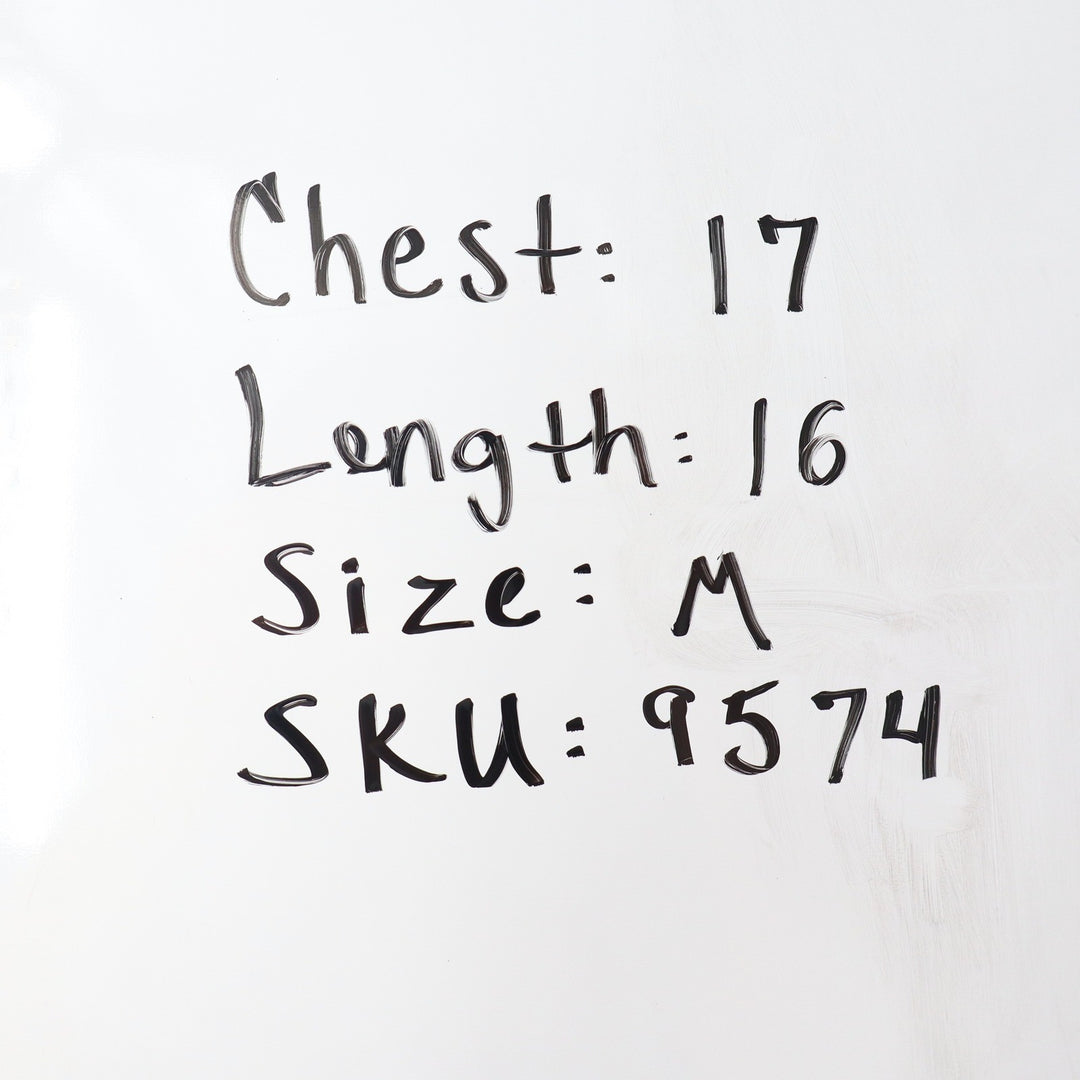 Chest: 17
Length: 16
Size: M
SKU: 9574